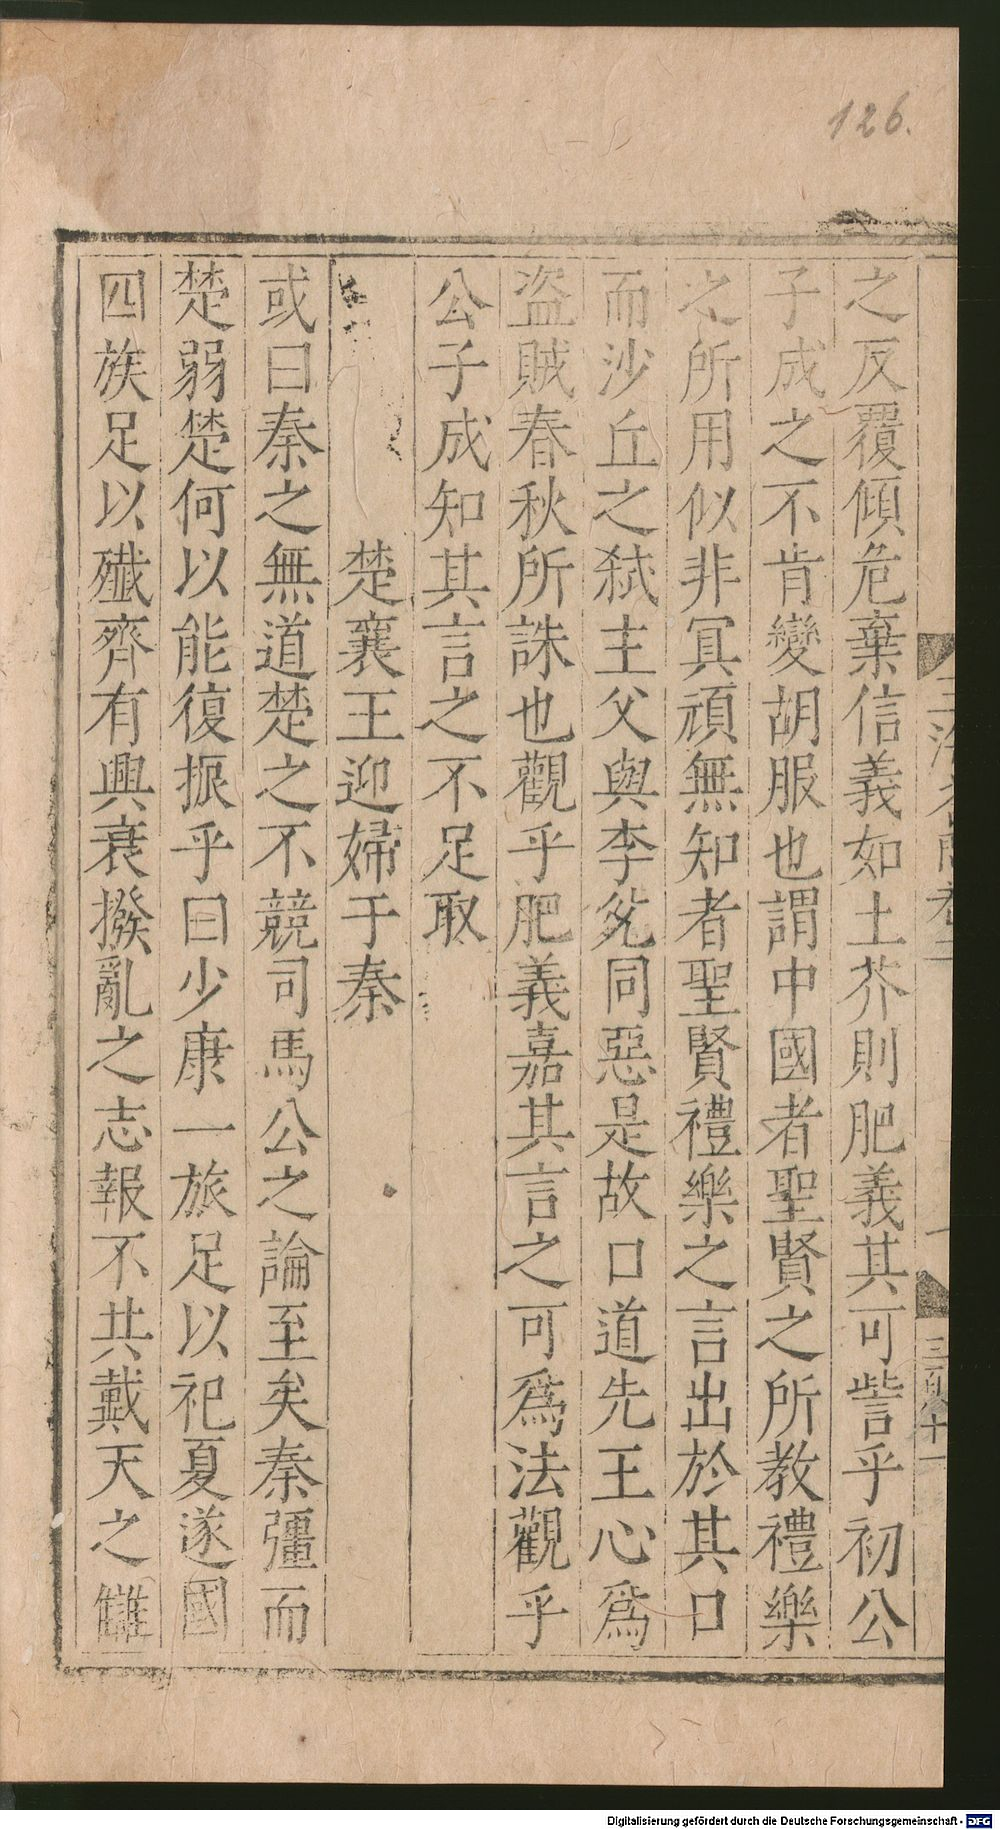 126.
之反覆傾危棄信義如土芥則肥義其可訾乎初公
子成之不肯變胡服也謂中國者聖賢之所教禮樂
之所用似非冥頑無知者聖賢禮樂之言出於其口
而沙丘之弑主父與李兊同惡是故口道先王心爲
盜賊春秋所誅也觀乎肥義嘉其言之可爲法觀乎
公子成知其言之不足取
楚襄王迎婦于秦
或曰秦之無道楚之不競司馬公之論至矣秦彊而
楚弱楚何以能復振乎曰少康一旅足以祀夏遂國
四族足以殲齊有興衰撥亂之志報不共戴天之讎
Digitalisierung gefördert durch die Deutsche Forschungsgemeinschaft - DFG